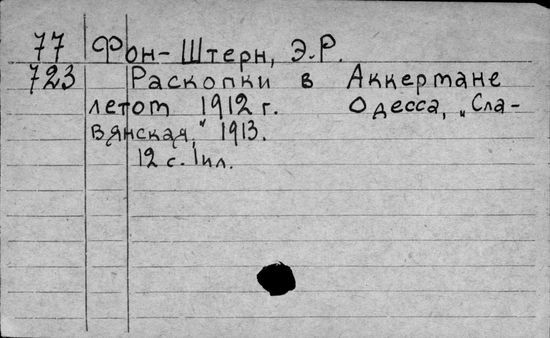 77 Фон-Штерн, Э.Р.
723 Раскопки в Аккермане
летом 1912 г. Одесса, „Сла-
вянская," 1913.
12 с. 1 ил.